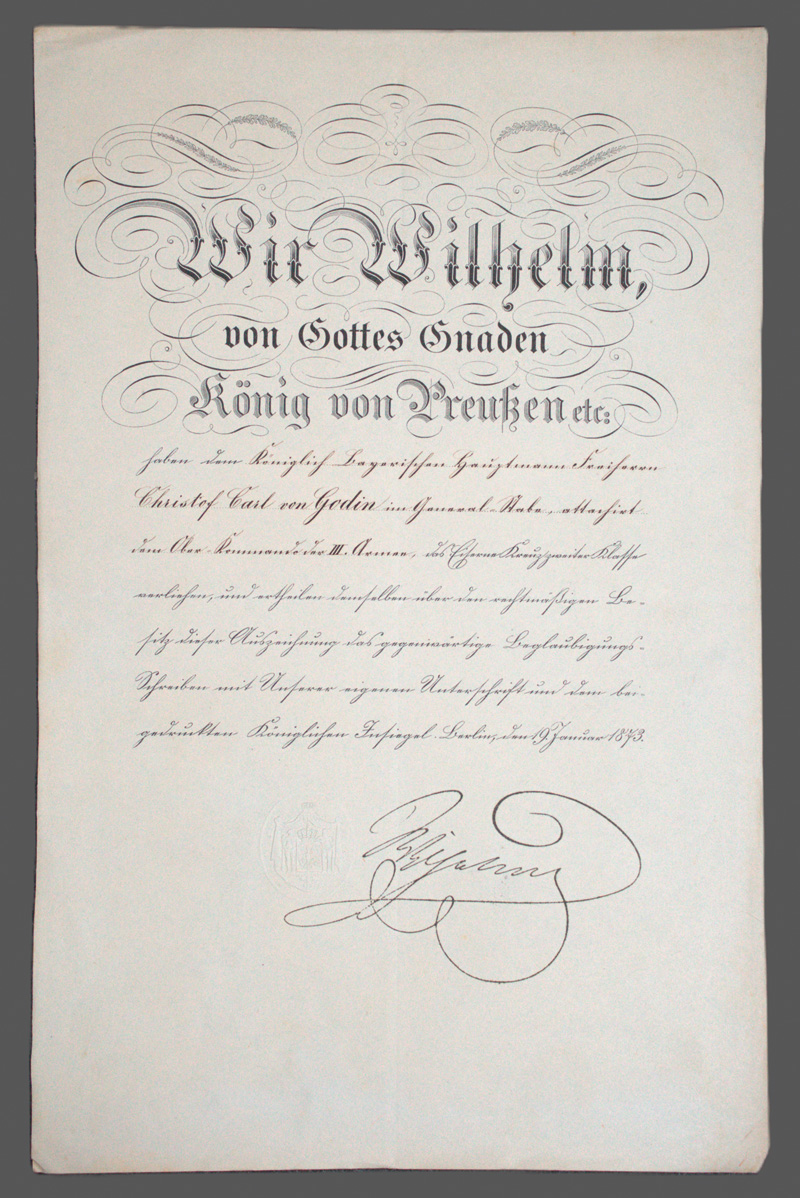 Wir Wilhelm,
von Gottes Gnaden
König von Preußen etc:
haben dem Königlich Bayerischen Hauptmann Freiherrn
Christof Carl von Godin im General-Stabe, attachirt
dem Ober-Kommando der III. Armee, das Eiserne Kreuz zweiter Klasse
verliehen, und ertheilen demselben über den rechtmäßigen Be-
sitz dieser Auszeichnung das gegenwärtige Beglaubigungs-
Schreiben mit Unserer eigenen Unterschrift und dem bei-
gedruckten Königlichen Insiegel. Berlin, den 19. Januar 1873.
Wilhelm